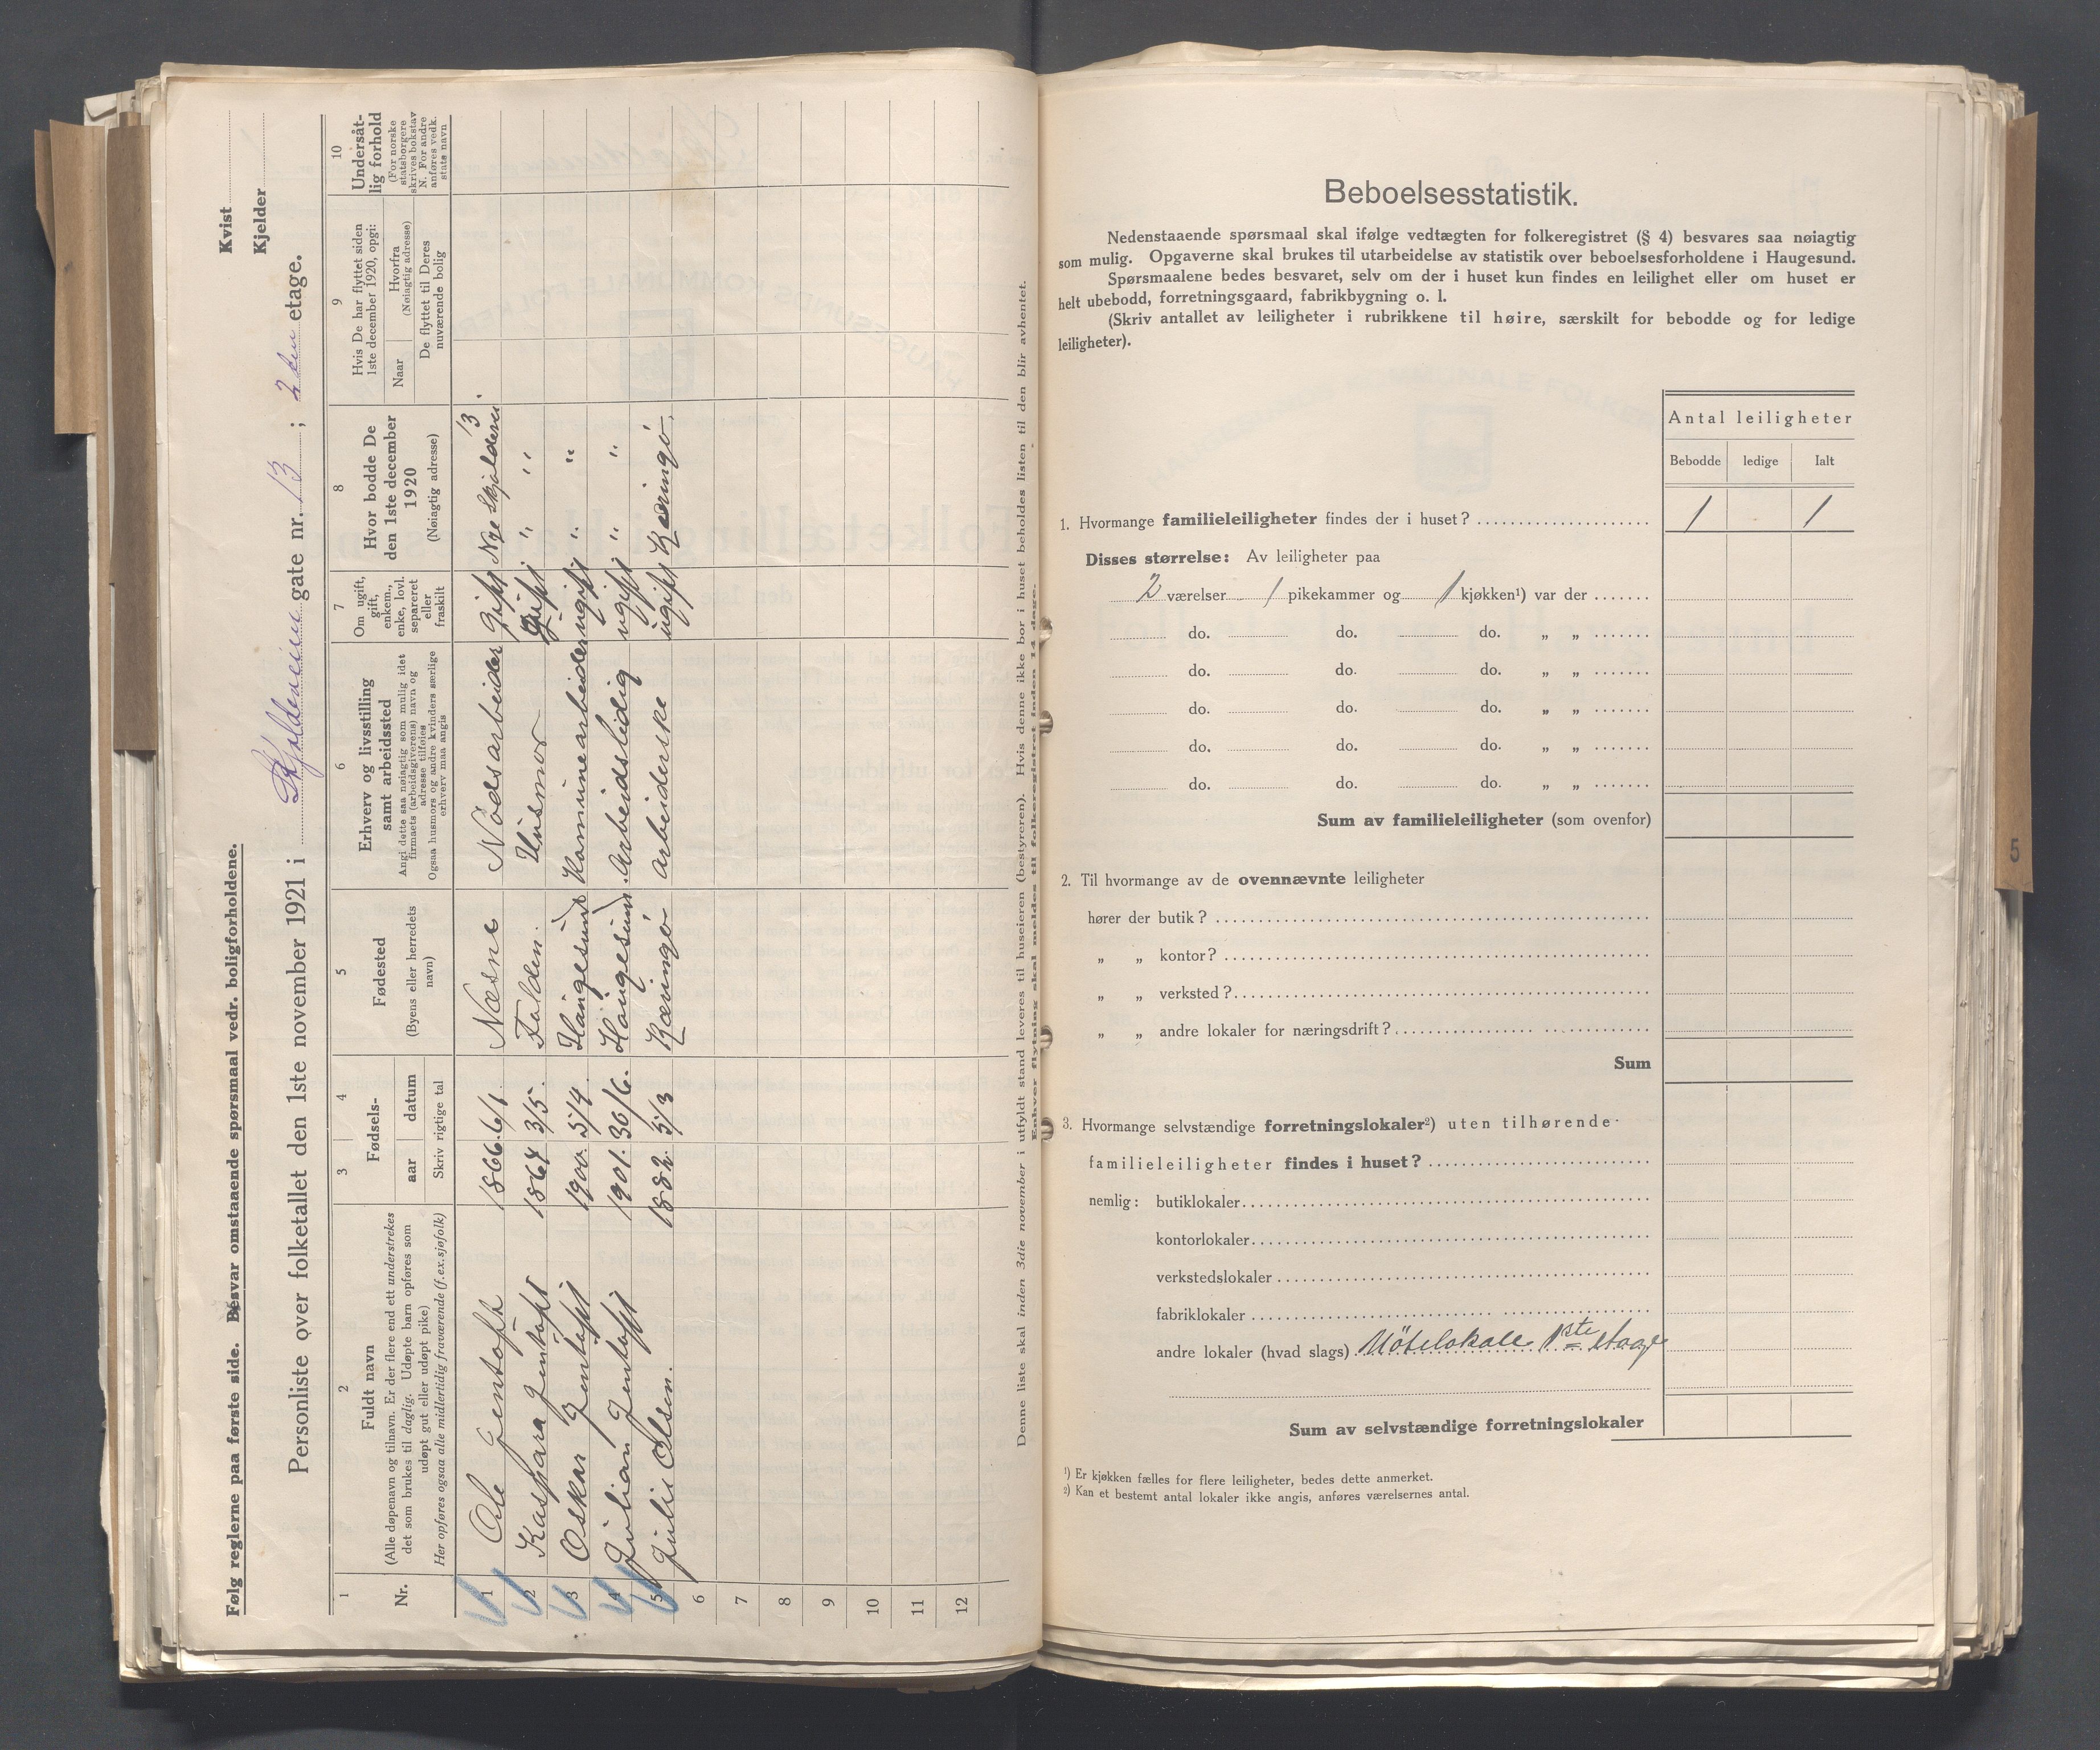 Følg reglerne paa første side. Besvar omstaaende spørsmaal vedr. boligforholdene.
Kvist
Kjelder
Personliste over folketallet den 1ste november 1921 i Skjoldeveien gate nr. 13 ; 2den etage.
1 2 3 4 5 6 7 8 9 10
Nr.
Fuldt navn
(Alle døpenavn og tilnavn. Er der flere end ett understrekes
det som brukes til daglig. Udøpte barn opføres som
udøpt gut eller udøpt pike)
Her opføres ogsaa alle midlertidig fraværende (f.ex.sjøfolk)
Fødsels-
aar datum
Skriv rigtige tal
Fødested
(Byens eller herredets
navn)
Erhverv og livsstilling
samt arbeidssted
Angi dette saa nøiagtig som mulig idet
firmaets (arbeidsgiverens) navn og
adresse tilføies
Ogsaa husmors og andre kvinders særlige
erhverv maa angis
Om ugift,
gift,
enkem.,
enke, lovl.
separeret
eller
fraskilt
Hvor bodde De
den 1ste december
1920
(Nøiagtig adresse)
Hvis De har flyttet siden
1ste december 1920, opgi:
Naar
Hvorfra
(Nøiagtig adresse)
De flyttet til Deres
nuværende bolig
Undersåt-
lig forhold
(For norske
statsborgere
skrives bokstav
N. For andre
anføres vedk.
stats navn
1 Ole Jentoft 1866. 6/1. Næsne Nødsarbeider gift Nye Skjoldevei 13.
2 Kaspara Jentoft 1864 3/5. Folden. Husmor gift " "
3 Oskar Jentoft 1900. 5/4 Haugesund Komunearbeider ugift " "
4 Julian Jentoft 1901. 30/6. Haugesund. Arbeidsledig ugift " "
5 Julie Olsen. 1882. 5/3 Kæringø Arbeiderske ugift Kæringø.
6
7
8
9
10
11
12
Denne liste skal inden 3die november i utfyldt stand leveres til huseieren (bestyreren). Hvis denne ikke bor i huset beholdes listen til den blir avhentet.
Enhver flytning skal meldes til folkeregistret inden 14 dage.
Beboelsesstatistik.
Nedenstaaende spørsmaal skal ifølge vedtægten for folkeregistret (§ 4) besvares saa nøiagtig
som mulig. Opgaverne skal brukes til utarbeidelse av statistik over beboelsesforholdene i Haugesund.
Spørsmaalene bedes besvaret, selv om der i huset kun findes en leilighet eller om huset er
helt ubebodd, forretningsgaard, fabrikbygning o. l.
(Skriv antallet av leiligheter i rubrikkene til høire, særskilt for bebodde og for ledige
leiligheter).
Antal leiligheter
Bebodde ledige Ialt
1. Hvormange familieleiligheter findes der i huset? 1 1
Disses størrelse: Av leiligheter paa
2 værelser 1 pikekammer og 1 kjøkken¹) var der
do. do. do. „ „
do. do. do. „ „
do. do. do. „ „
do. do. do. „ „
do. do. do. „ „
Sum av familieleiligheter (som ovenfor)
2. Til hvormange av de ovennævnte leiligheter
hører der butik?
„ „ kontor?
„ „ verksted?
„ „ andre lokaler for næringsdrift?
Sum
3. Hvormange selvstændige forretningslokaler²) uten tilhørende
familieleiligheter findes i huset?
nemlig: butiklokaler
kontorlokaler
verkstedslokaler
fabriklokaler
andre lokaler (hvad slags) Mötelokale 1ste etage
Sum av selvstændige forretningslokaler
¹) Er kjøkken fælles for flere leiligheter, bedes dette anmerket.
²) Kan et bestemt antal lokaler ikke angis, anføres værelsernes antal.
5